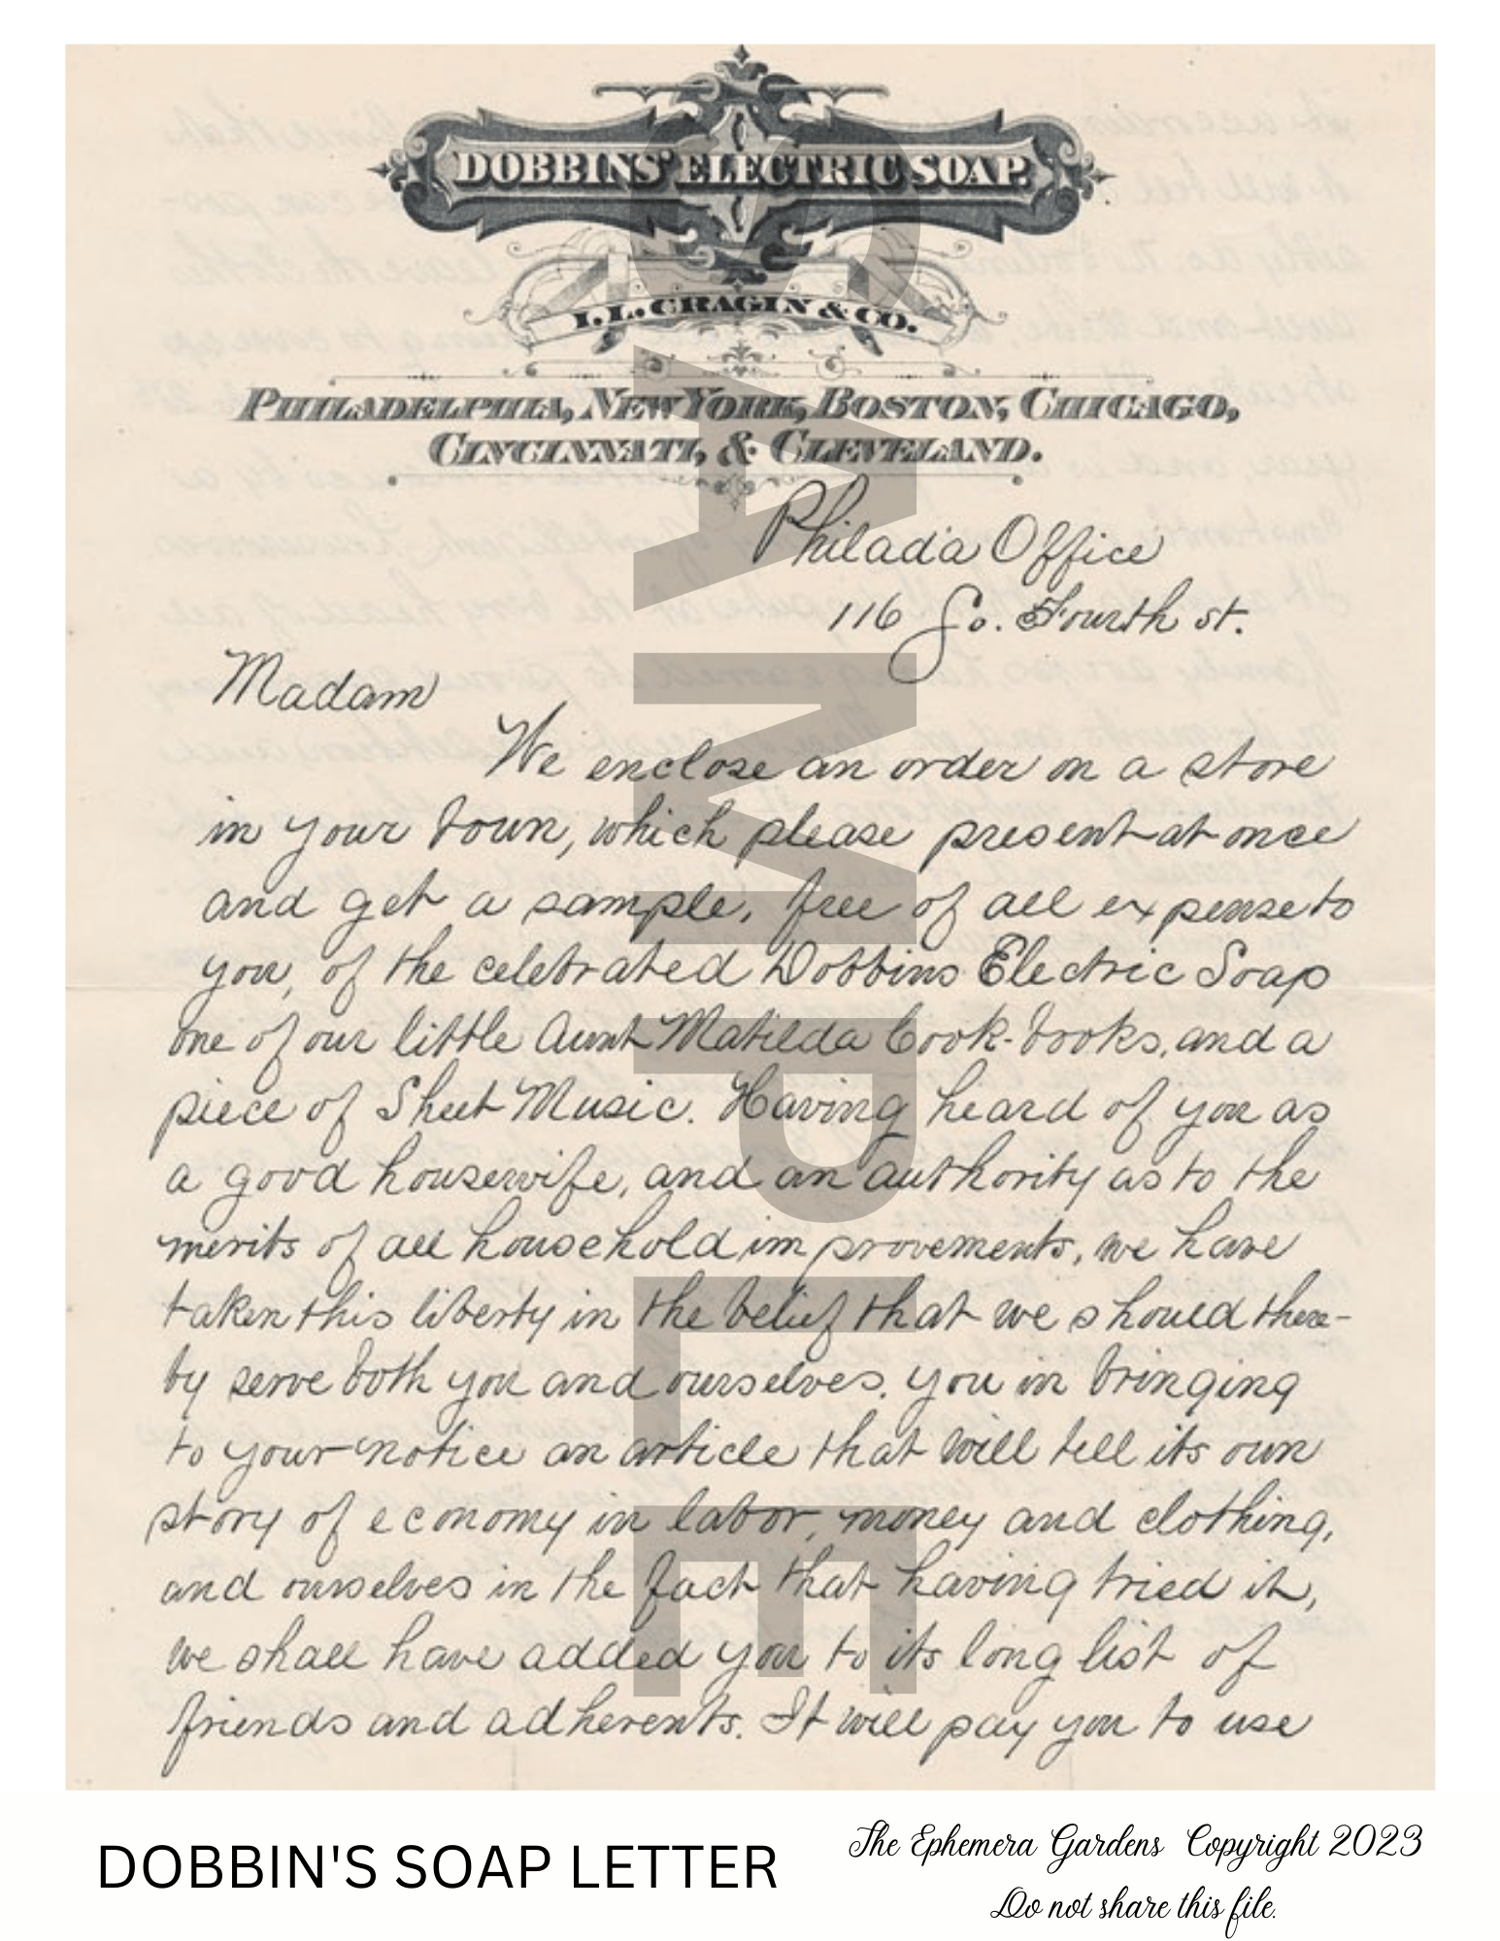 DOBBINS' ELECTRIC SOAP.
I. L. CRAGIN & CO.
PHILADELPHIA, NEW YORK, BOSTON, CHICAGO,
CINCINNATI, & CLEVELAND.
Philada Office
116 So. Fourth st.
Madam
We enclose an order on a store
in your town, which please present at once
and get a sample, free of all expense to
you, of the celebrated Dobbins Electric Soap
one of our little Aunt Matilda Cook-books, and a
piece of Sheet Music. Having heard of you as
a good housewife, and an authority as to the
merits of all household improvements, we have
taken this liberty in the belief that we should there-
by serve both you and ourselves. you in bringing
to your notice an article that will tell its own
story of economy in labor, money and clothing,
and ourselves in the fact that having tried it,
we shall have added you to its long list of
friends and adherents. It will pay you to use
SAMPLE
DOBBIN'S SOAP LETTER
The Ephemera Gardens Copyright 2023
Do not share this file.